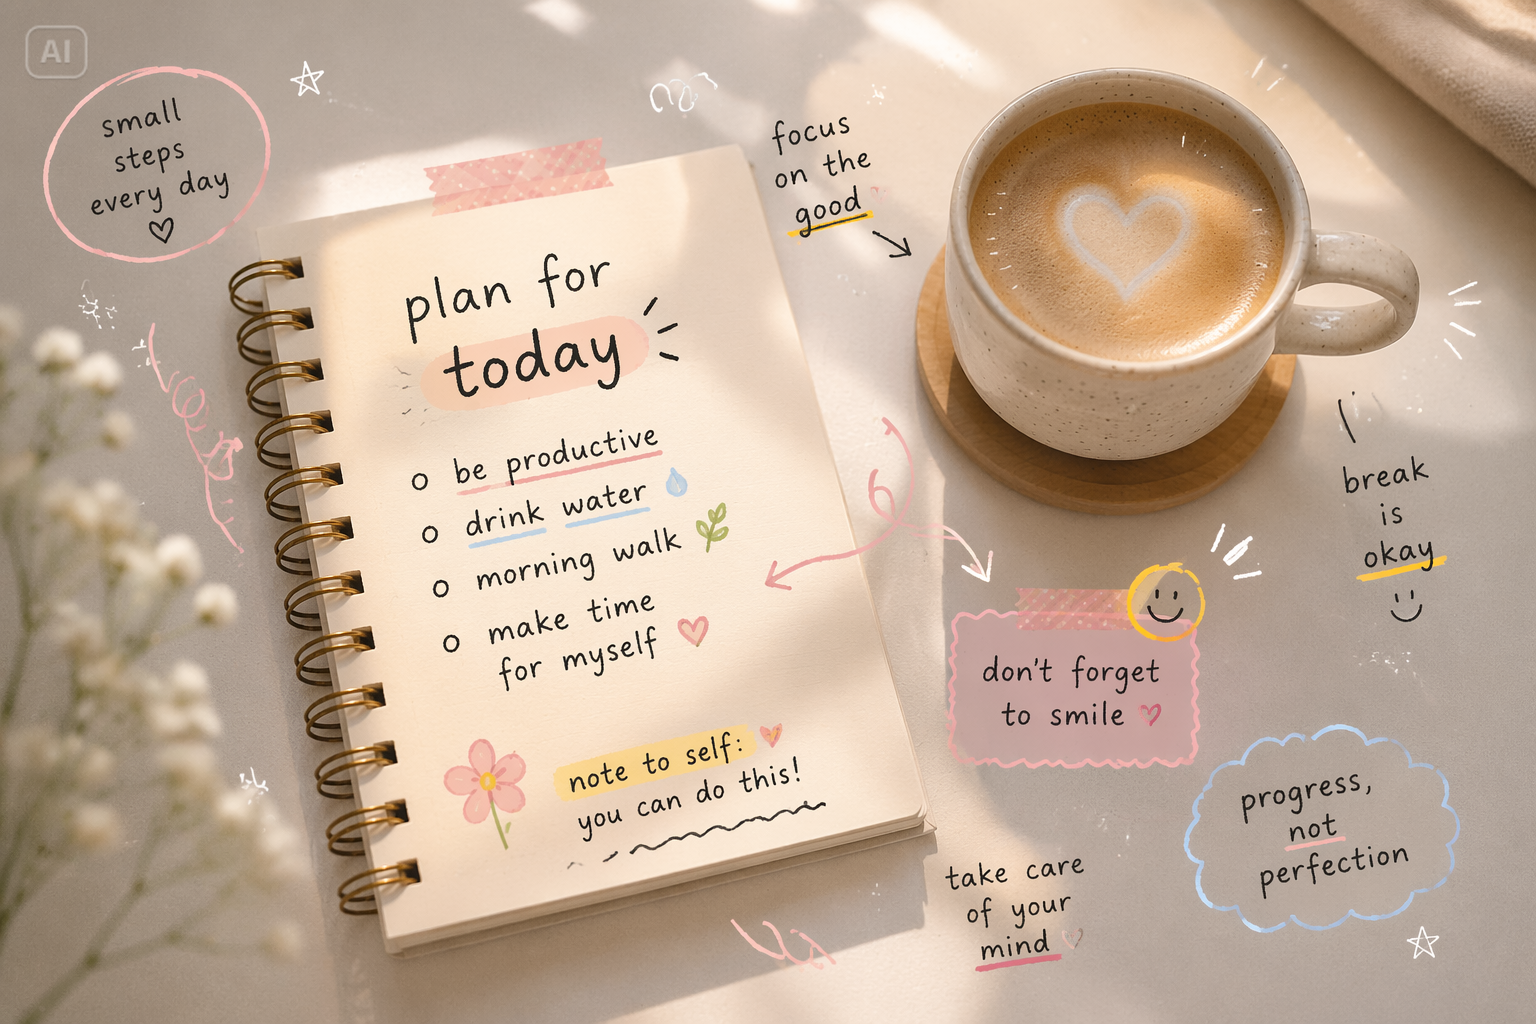 AI
small
steps
every day
plan for
today
be productive
drink water
morning walk
make time
for myself
note to self:
you can do this!
focus
on the
good
break
is
okay
don't forget
to smile
progress,
not
perfection
take care
of your
mind